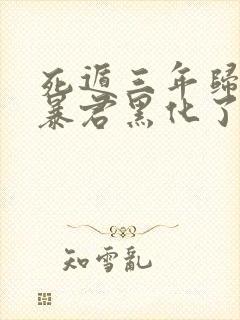 死遁三年歸
暴君黑化了
知雪亂